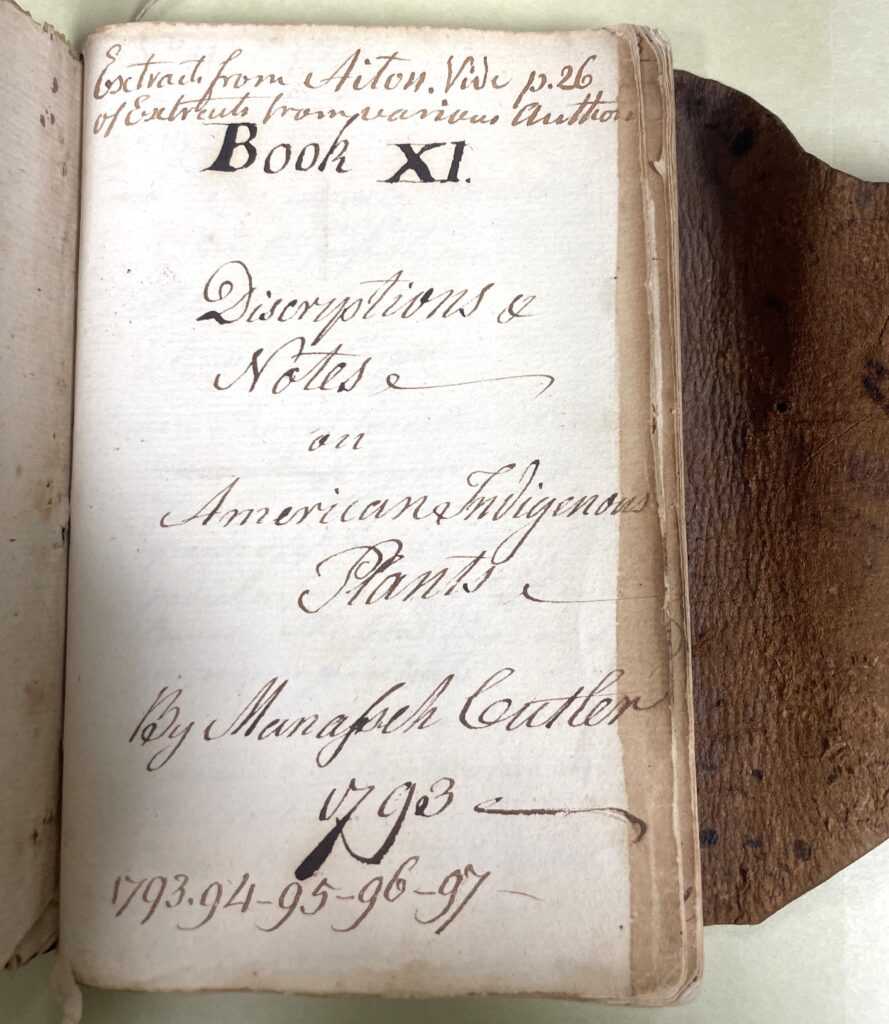 Extracts from Aiton. Vide p. 26
of Extracts from various Authors
Book XI.
Discryptions &
Notes
on
American Indigenous
Plants
By Manasseh Cutler
1793
1793. 94 - 95 - 96 - 97 -